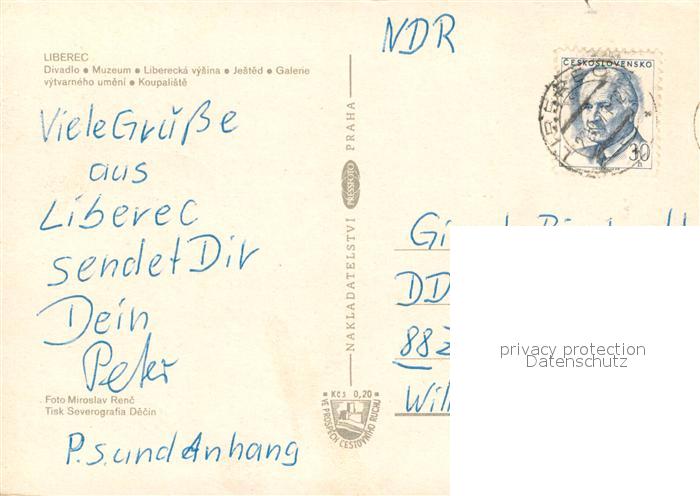 LIBEREC
Divadlo • Muzeum • Liberecká výšina • Ještěd • Galerie
výtvarného umění • Koupaliště
Viele Grüße
aus
Liberec
sendet Dir
Dein
Peter
Foto Miroslav Renč
Tisk Severografia Děčín
P.s. und Anhang
NAKLADATELSTVÍ PRESSFOTO PRAHA
Kčs 0,20
VE PROSPĚCH CESTOVNÍHO RUCHU
NDR
ČESKOSLOVENSKO
30 h
LIBEREC
DD
88
Will
privacy protection
Datenschutz